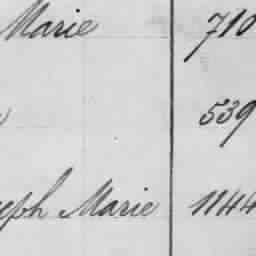 Marie 710
539
eph Marie 1144